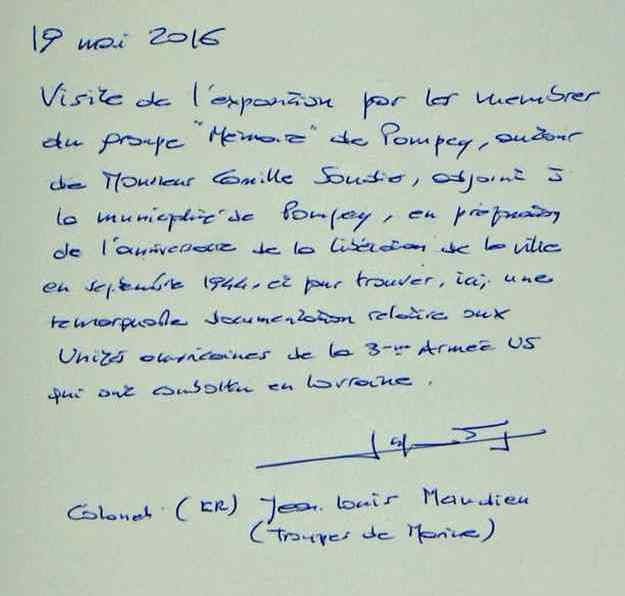 19 mai 2016
Visite de l'exposition par les membres
du groupe "Mémoire" de Pompey, autour
de Monsieur Camille, adjoint à
la municipalité de Pompey, en préparation
de l'anniversaire de la libération de la ville
en septembre 1944, et pour trouver, ici, une
remarquable documentation relative aux
Unités américaines de la 3ème Armée US
qui ont combattu en Lorraine.
Colonel (ER) Jean Louis Maudieu
(Troupes de Marine)